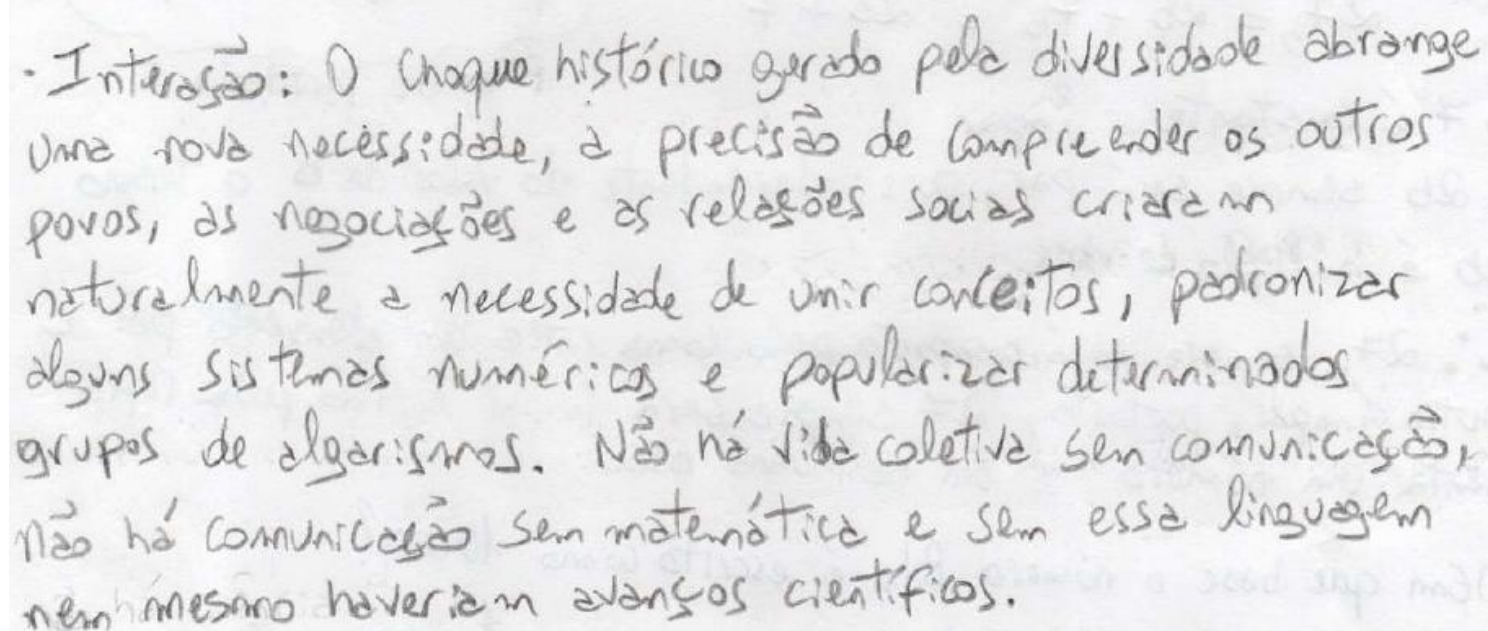 · Interação: O choque histórico gerado pela diversidade abrange
uma nova necessidade, a precisão de compreender os outros
povos, as negociações e as relações socias criaram
naturalmente a necessidade de unir conceitos, padronizar
alguns sistemas numéricos e popularizar determinados
grupos de algarismos. Não há vida coletiva sem comunicação,
não há comunicação sem matemática e sem essa linguagem
nem mesmo haveriam avanços científicos.